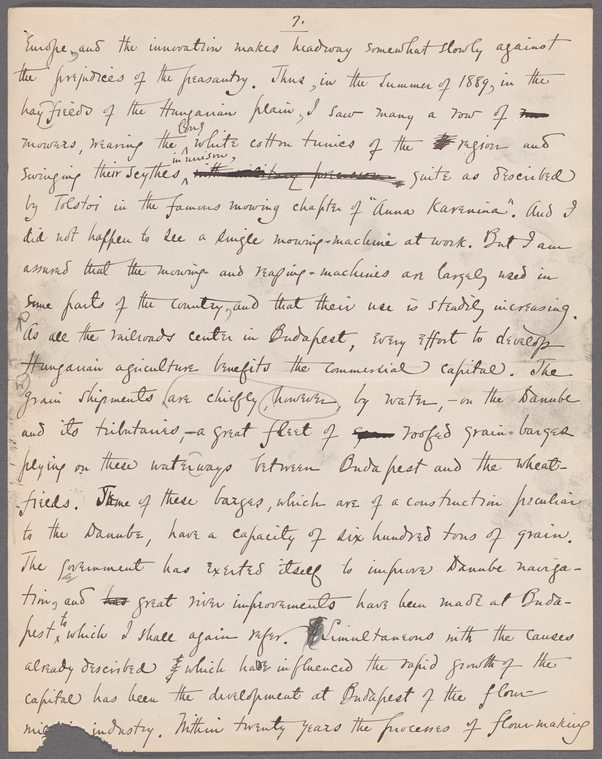 7.
Europe, and the innovation makes headway somewhat slowly against
the prejudices of the peasantry. Thus, in the Summer of 1889, in the
hayfields of the Hungarian plain, I saw many a row of
mowers, wearing the long white cotton tunics of the region and
swinging their scythes in unison, with military precision quite as described
by Tolstoi in the famous mowing chapter of "Anna Karenina". And I
did not happen to see a single mowing-machine at work. But I am
assured that the mowing- and reaping-machines are largely used in
some parts of the country, and that their use is steadily increasing.
As all the railroads center in Budapest, every effort to develop
Hungarian agriculture benefits the commercial capital. The
grain shipments are chiefly, however, by water,-on the Danube
and its tributaries,-a great fleet of roofed grain-barges
plying on these waterways between Budapest and the wheat-
fields. Some of these barges, which are of a construction peculiar
to the Danube, have a capacity of six hundred tons of grain.
The government has exerted itself to improve Danube naviga-
tion, and has great river improvements have been made at Buda-
pest to which I shall again refer. Simultaneous with the causes
already described which have influenced the rapid growth of the
capital has been the development at Budapest of the flour-
industry. Within twenty years the processes of flour-making